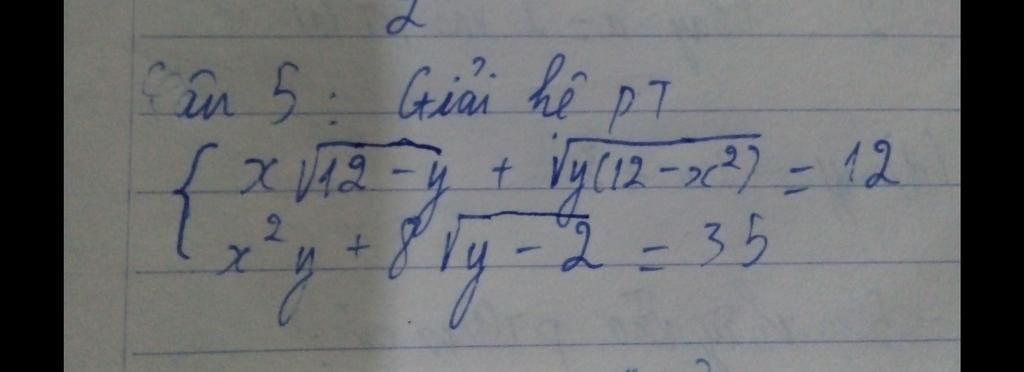 Câu 5: Giải hê PT
{ x√(12-y) + √(y(12-x²)) = 12
x²y + 8√(y-2) = 35